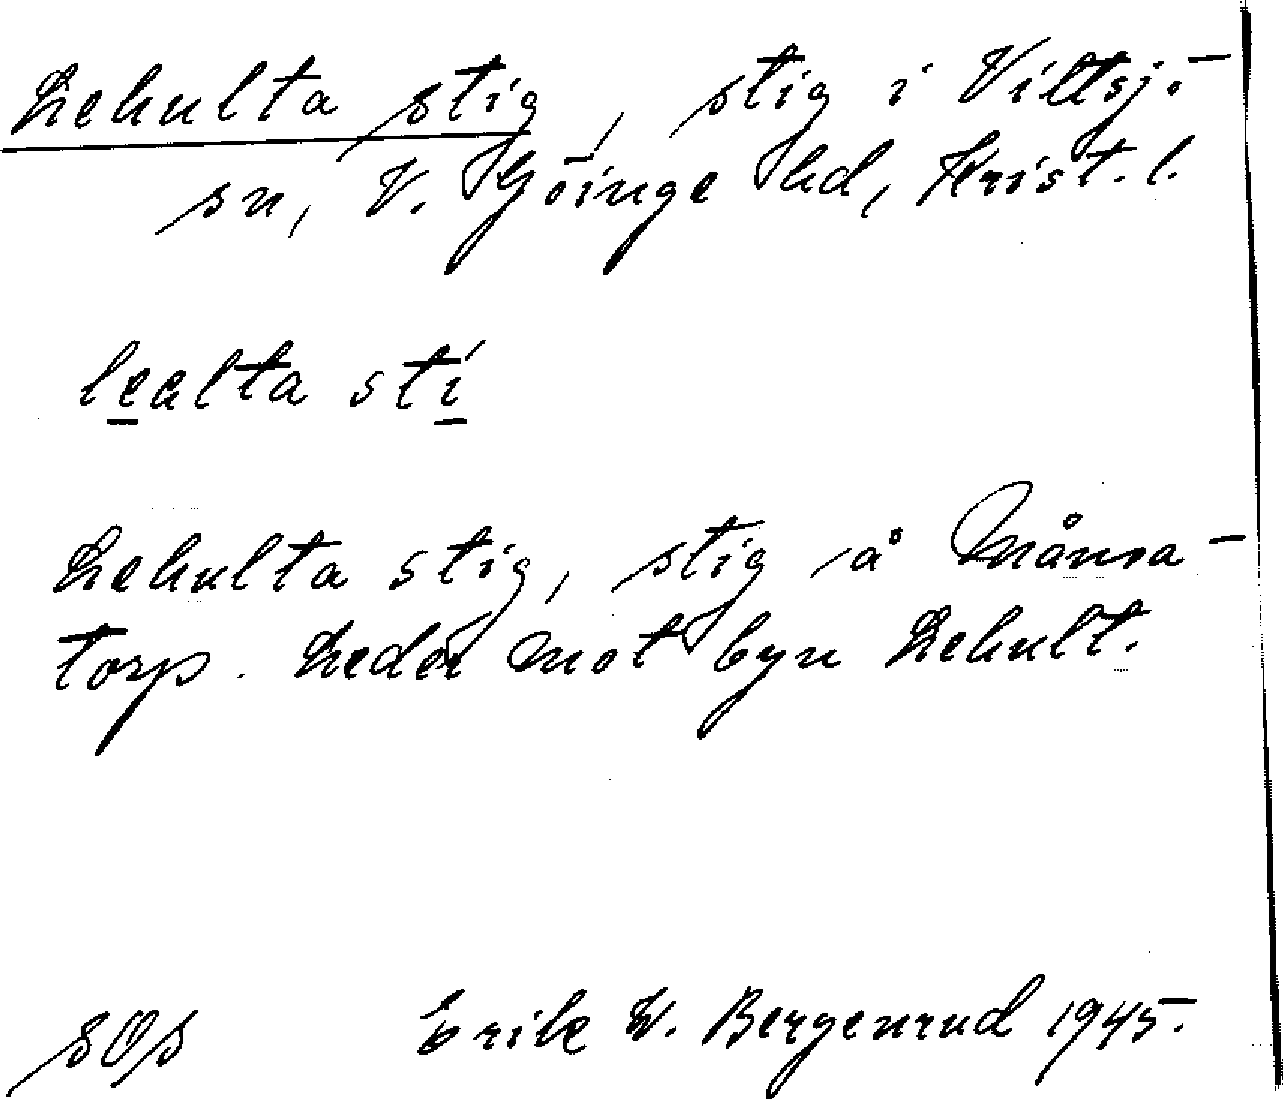 Lehulta stig, stig i Vittsjö
sn, V. Göinge hd, Krist. l.
lealta stí
Lehulta stig, stig å Månsa-
torp. Leder mot byn Lehult.
SOS Erik W. Bergenrud 1945.